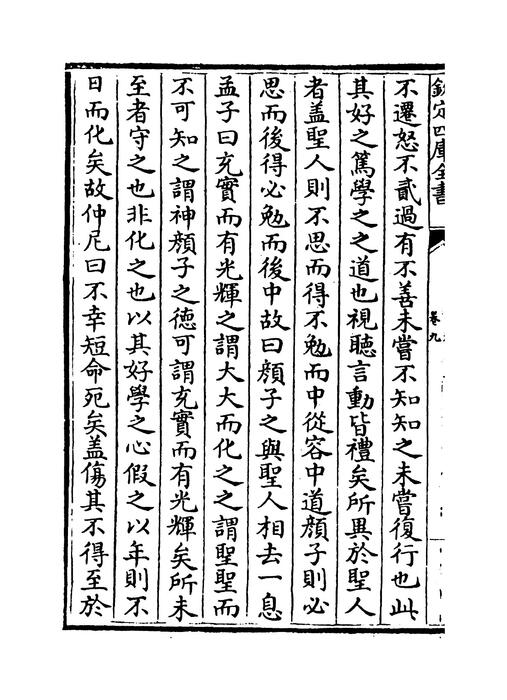 欽定四庫全書
卷九
不遷怒不貳過有不善未嘗不知知之未嘗復行也此
其好之篤學之之道也視聽言動皆禮矣所異於聖人
者蓋聖人則不思而得不勉而中從容中道顏子則必
思而後得必勉而後中故曰顏子之與聖人相去一息
孟子曰充實而有光輝之謂大大而化之之謂聖聖而
不可知之謂神顏子之德可謂充實而有光輝矣所未
至者守之也非化之也以其好學之心假之以年則不
日而化矣故仲尼曰不幸短命死矣蓋傷其不得至於